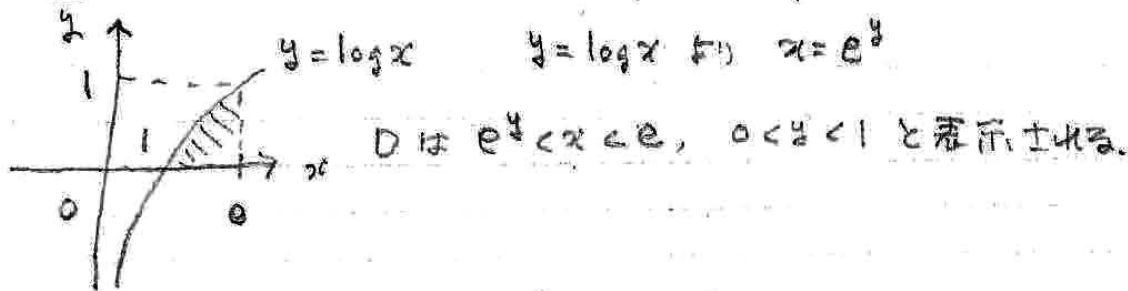 y
1
y = log x
y = log x より x = e^y
1
D は e^y < x < e, 0 < y < 1 と表示される.
x
0
e